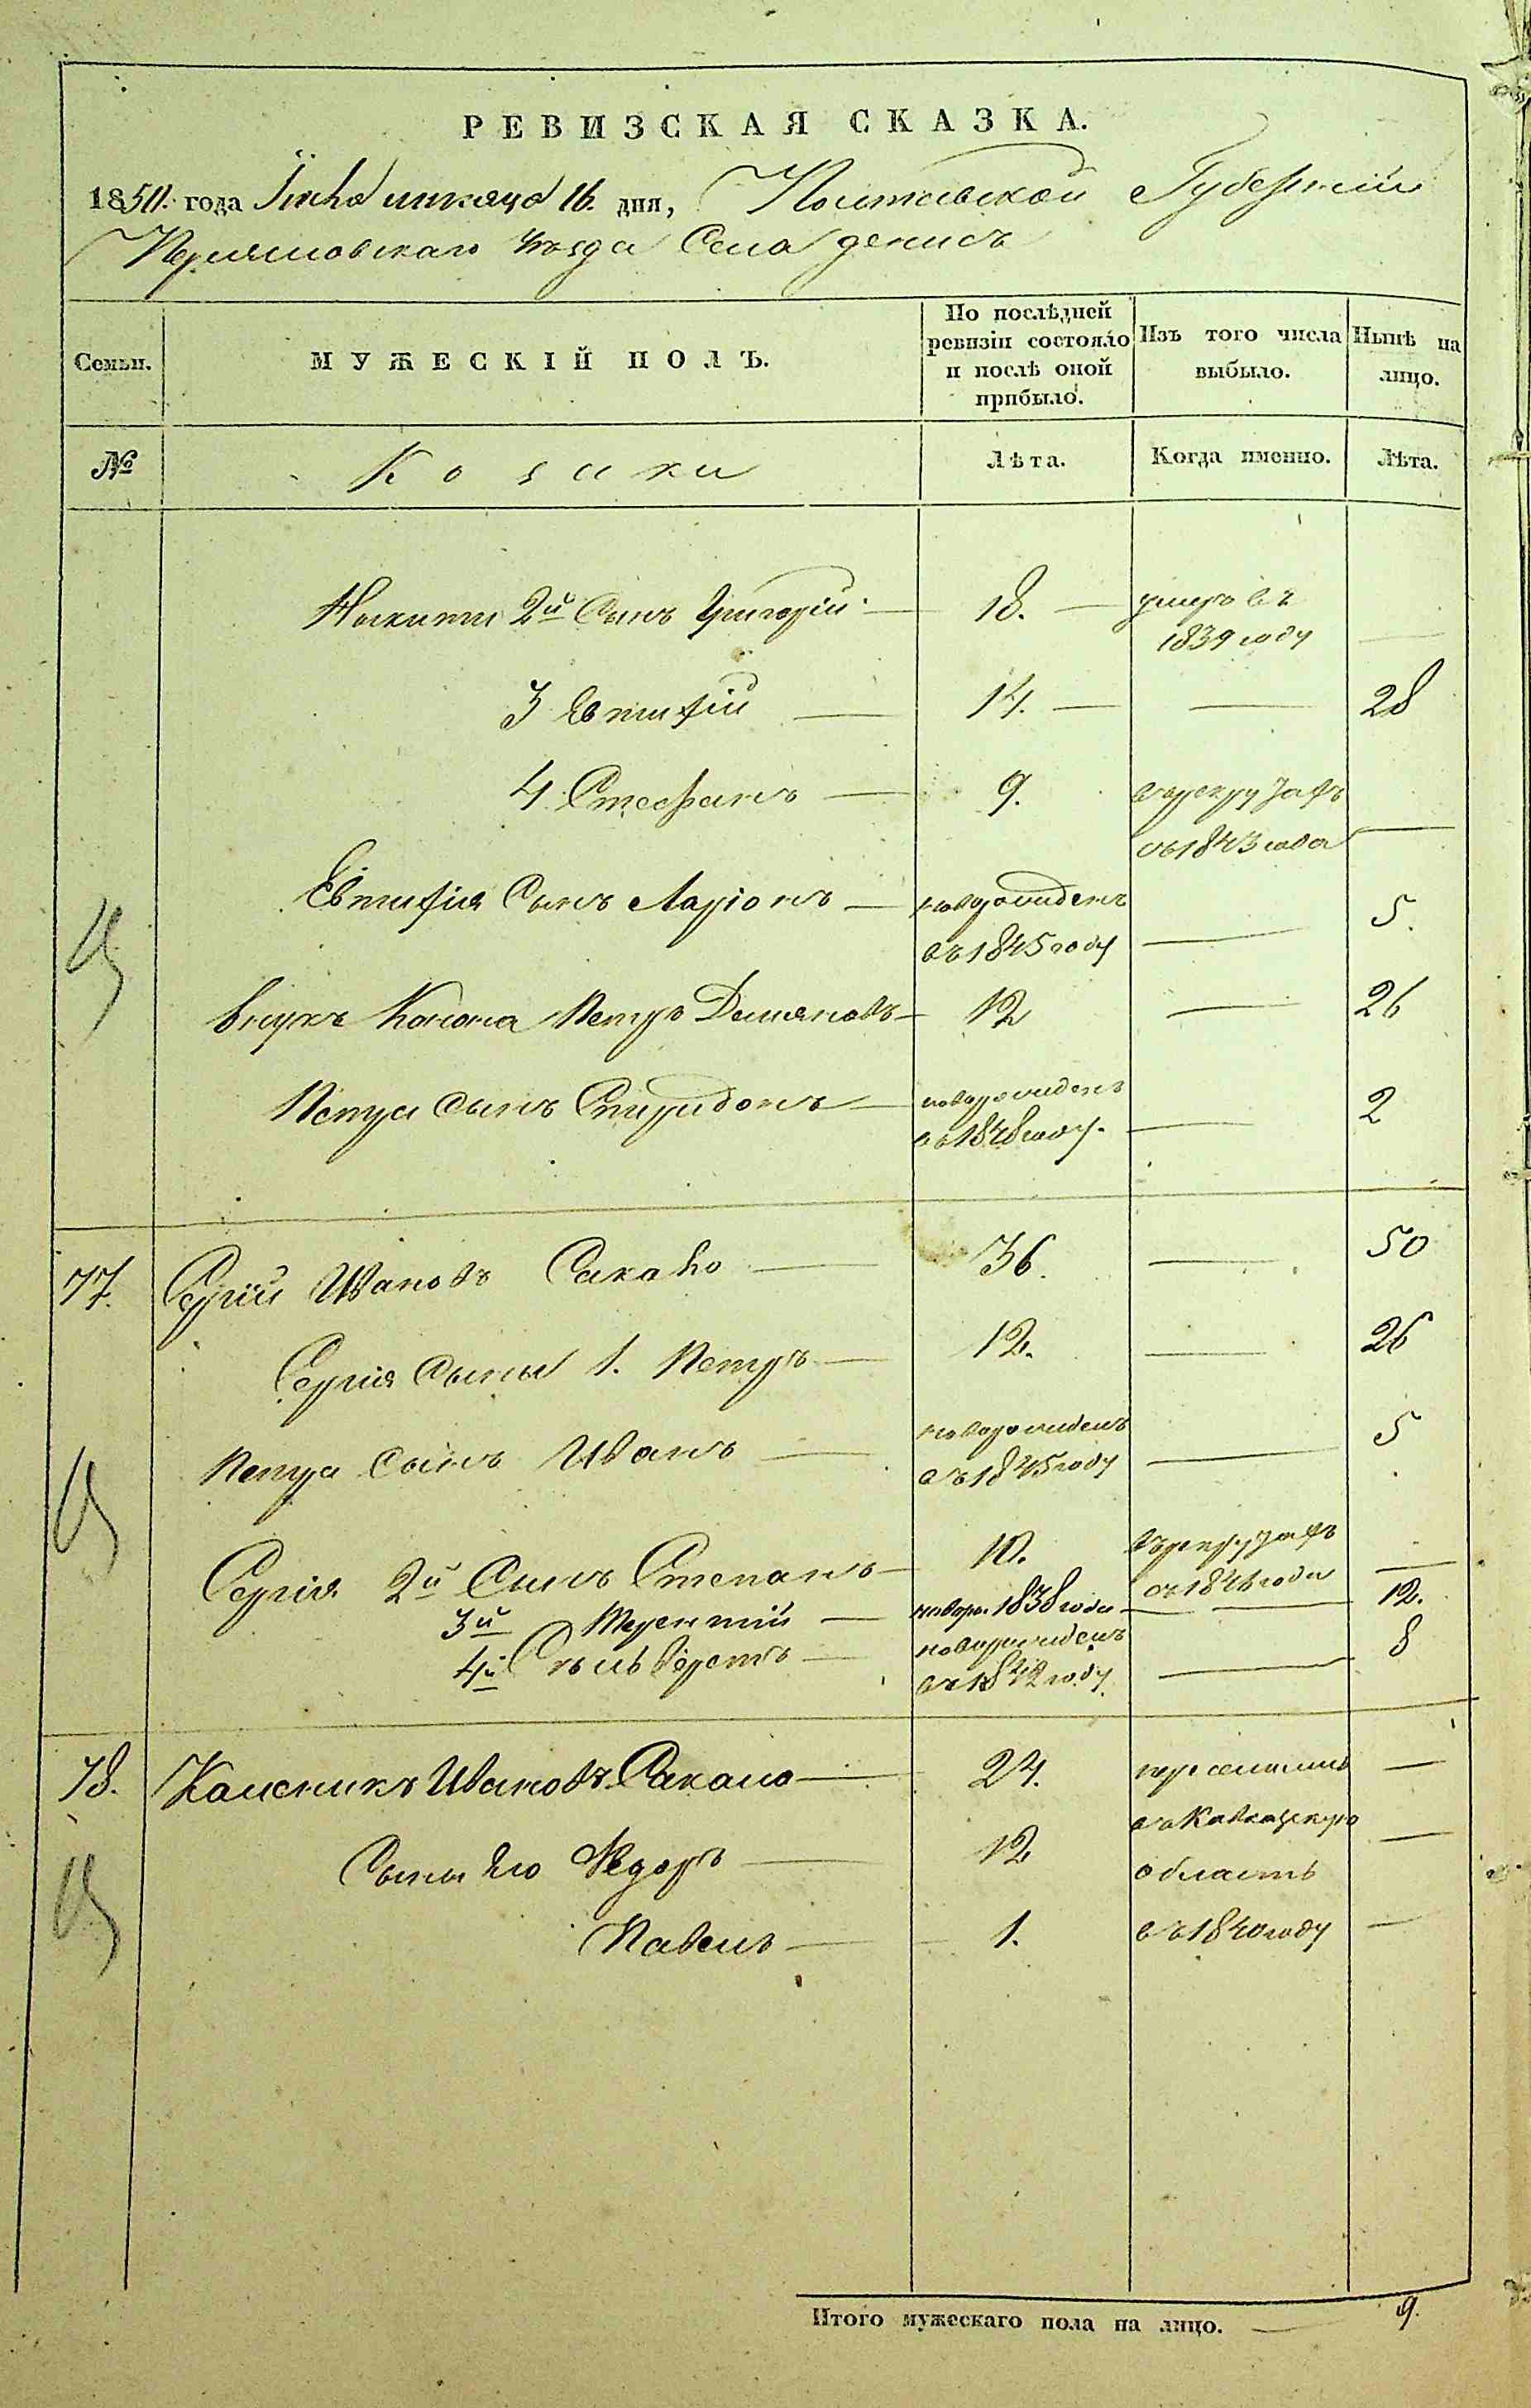 РЕВИЗСКАЯ СКАЗКА.
1850. года Іюня мѣсяца 16. дня, Полтавской Губерніи
Переяславскаго уѣзда Села Денисъ
Семьи. МУЖЕСКІЙ ПОЛЪ. По послѣдней ревизіи состояло и послѣ оной прибыло. Изъ того числа выбыло. Нынѣ на лицо.
№ Козаки Лѣта. Когда именно. Лѣта.
Никиты 2й Сынъ Григорій — 18. — умеръ въ 1839 году —
3 Евтифій — 14. — — 28
4 Стефанъ — 9. въ рекрутахъ съ 1843 года —
Евтифія Сынъ Ларіонъ — новорожденъ въ 1845 году — 5.
внукъ Конона Петръ Демяновъ — 12 — 26
Петра сынъ Спиридонъ — новорожденъ въ 1848 году. — 2
77. Сергій Ивановъ Сакало — 36. — 50
Сергія Сыны 1. Петръ — 12. — 26
Петра Сынъ Иванъ — новорожденъ въ 1845 году — 5
Сергія 2й Сынъ Степанъ — 10. въ рекрутахъ съ 1846 года —
3й Терентій — новоро. 1838 года — 12.
4й Сильверстъ — новорожденъ въ 1842 году. — 8
78. Каленикъ Ивановъ Сакало — 24. переселились —
Сыны Его Федоръ — 12 въ Кавказскую —
область
Павелъ — 1. въ 1840 году —
Итого мужескаго пола на лицо. — 9.